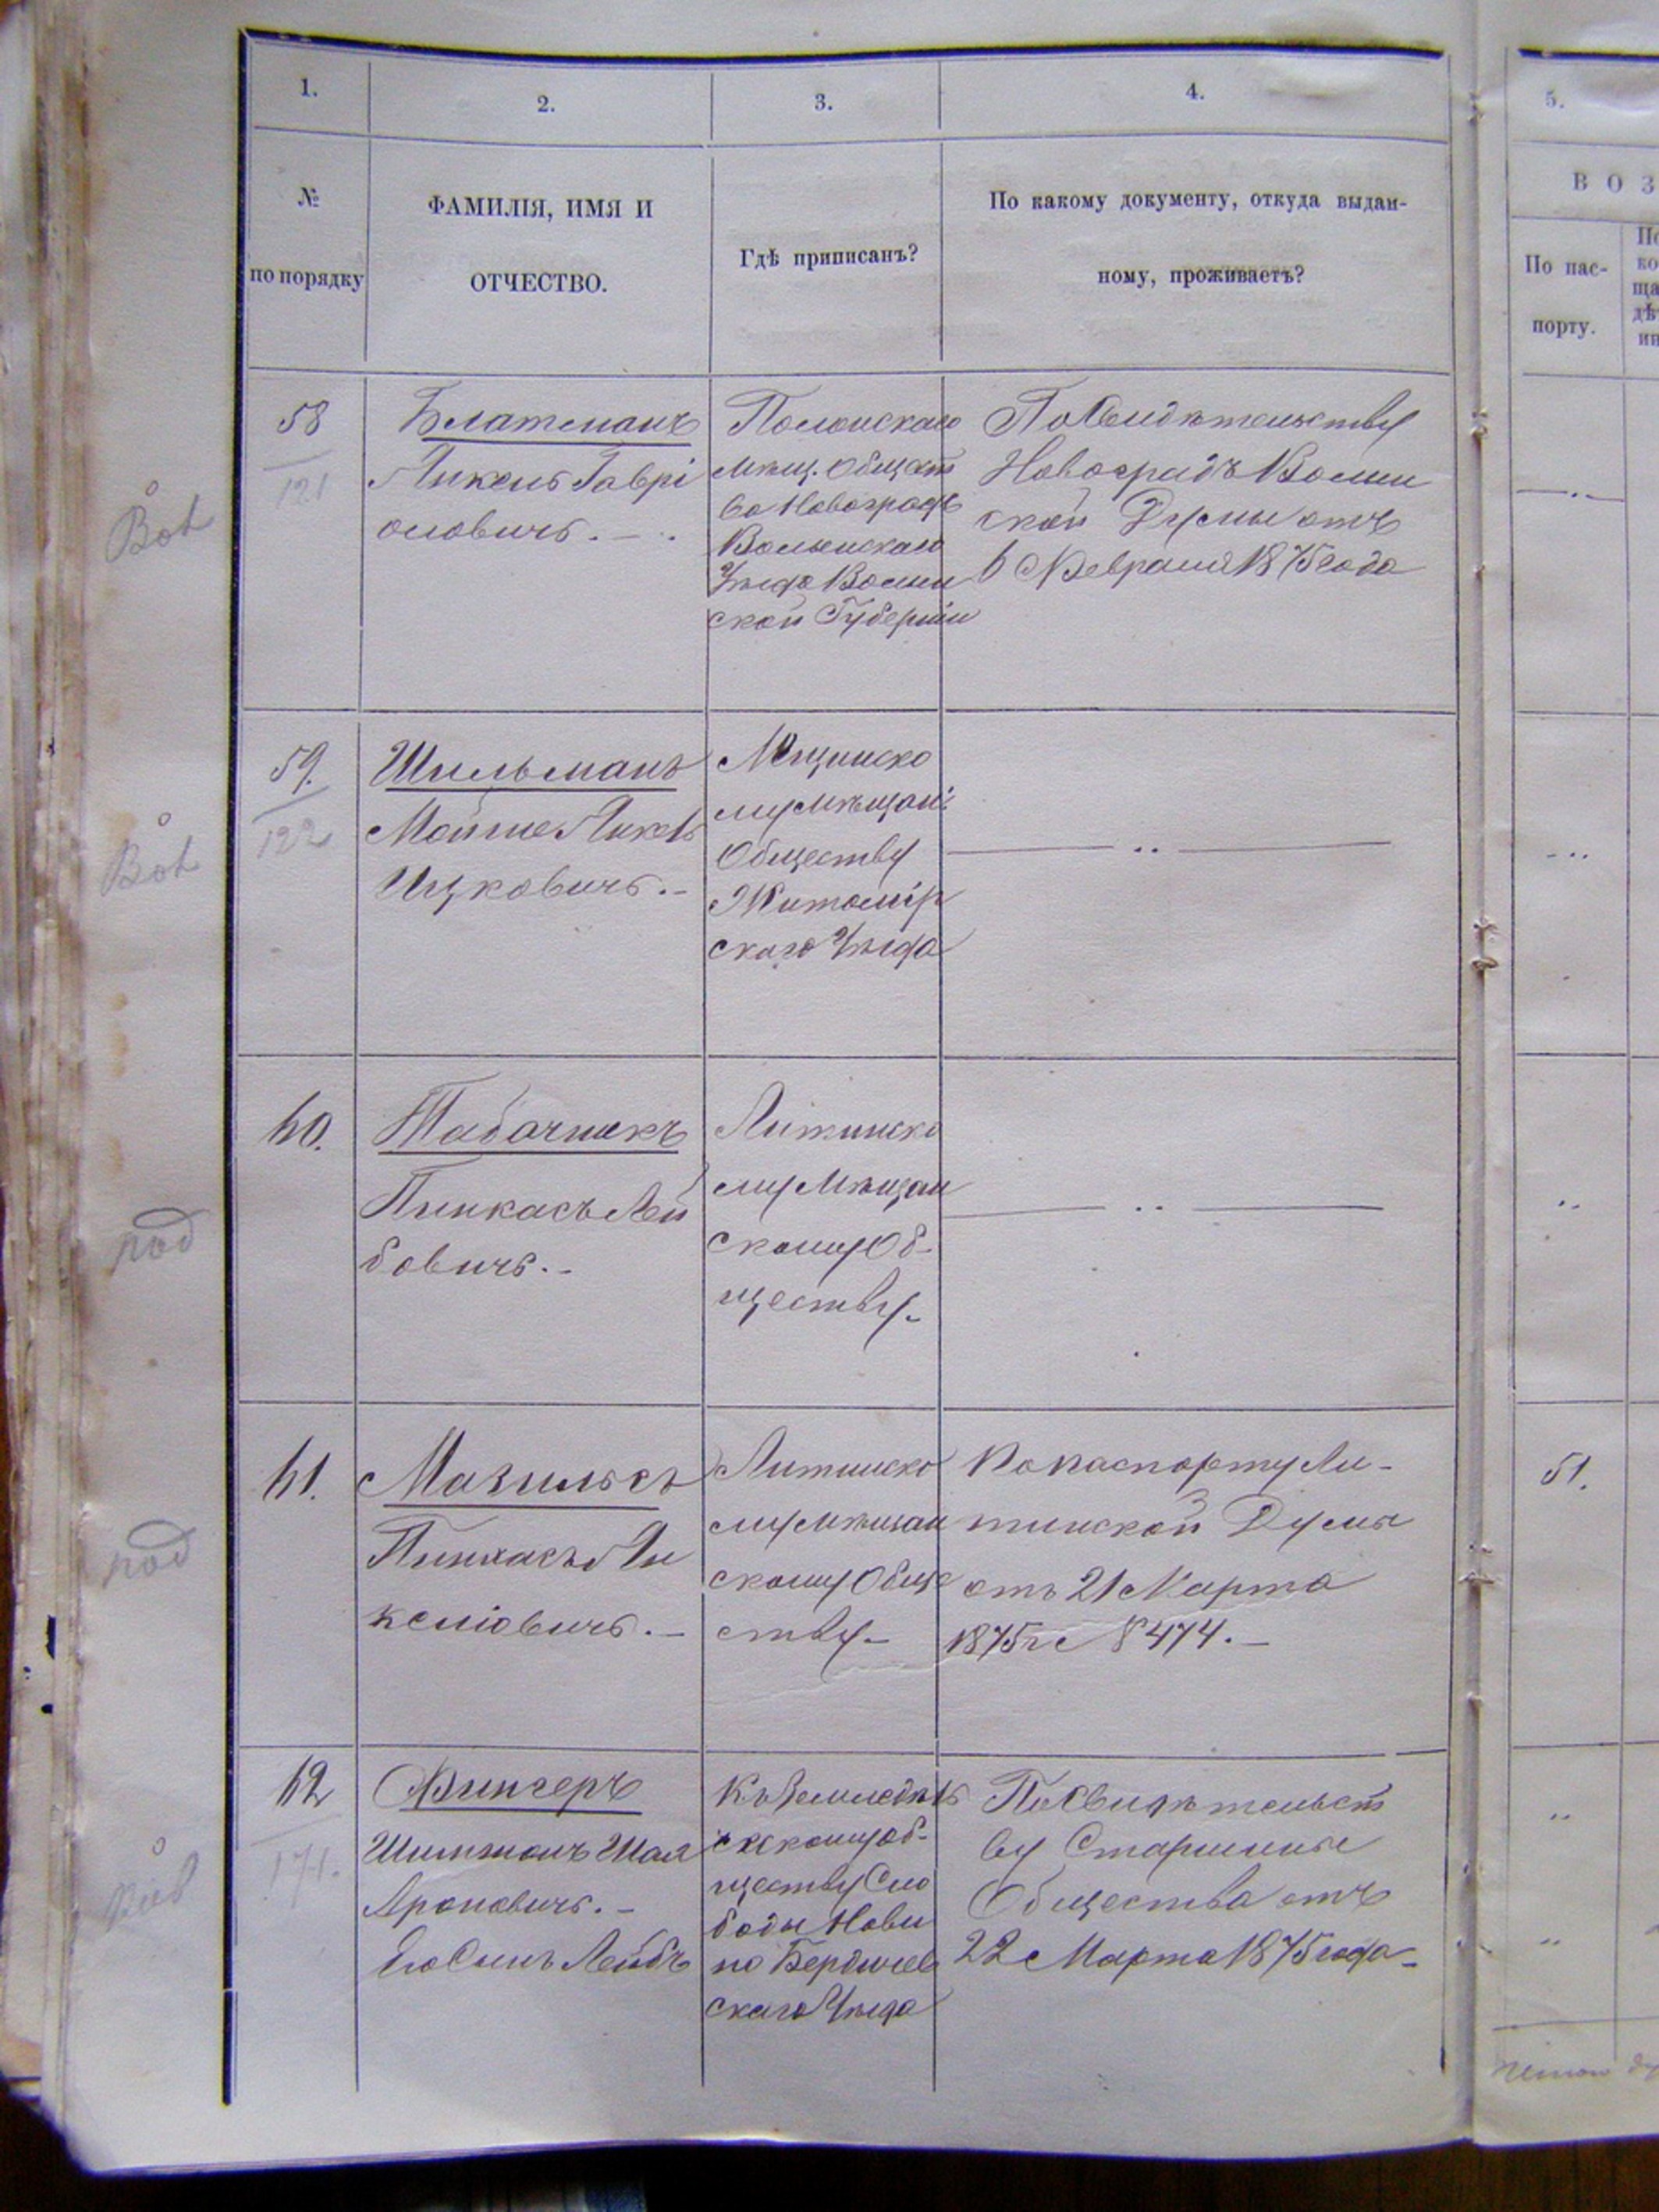 1.
2.
3.
4.
5.
№
по порядку
ФАМИЛІЯ, ИМЯ И
ОТЧЕСТВО.
Гдѣ приписанъ?
По какому документу, откуда выдан-
ному, проживаетъ?
В О З
По пас-
порту.
58
121
Блатманъ
Янкель Гаврі
оловичъ. –
Полонскаго
мѣщ. Общест
ва Новоградъ
Волынскаго
Уѣзда Волын
ской Губерніи
По Свидѣтельству
Новоградъ Волын
ской Думы отъ
6 Февраля 1875 года
59.
122
Шильманъ
Мойше Янкель
Ицковичъ. –
му мѣщан:
Обществу
Житомір
скаго Уѣзда
60.
под
Табачникъ
Пинкасъ Лей
бовичъ. –
Литинско
му Мѣщан
скому Об-
ществу. –
61.
под
Мазильсъ
Пинкасъ Ян
келіовичъ. –
Литинско
му мѣщан
скому Обще
ству –
По паспорту Ли-
тинской Думы
отъ 21 Марта
1875 г № 474. –
51.
62
171.
Фингеръ
Шимшонъ Шая
Ароновичъ. –
Его Сынъ Лейбъ
Къ Земледѣль
ческому об-
ществу Сло
боды Нови
но Бердичев
скаго Уѣзда
По Свидѣтельст
ву Старшины
Общества отъ
22 Марта 1875 года –